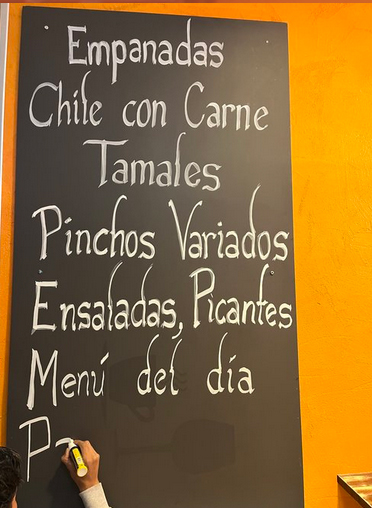 Empanadas
Chile con Carne
Tamales
Pinchos Variados
Ensaladas, Picantes
Menú del día
Pa